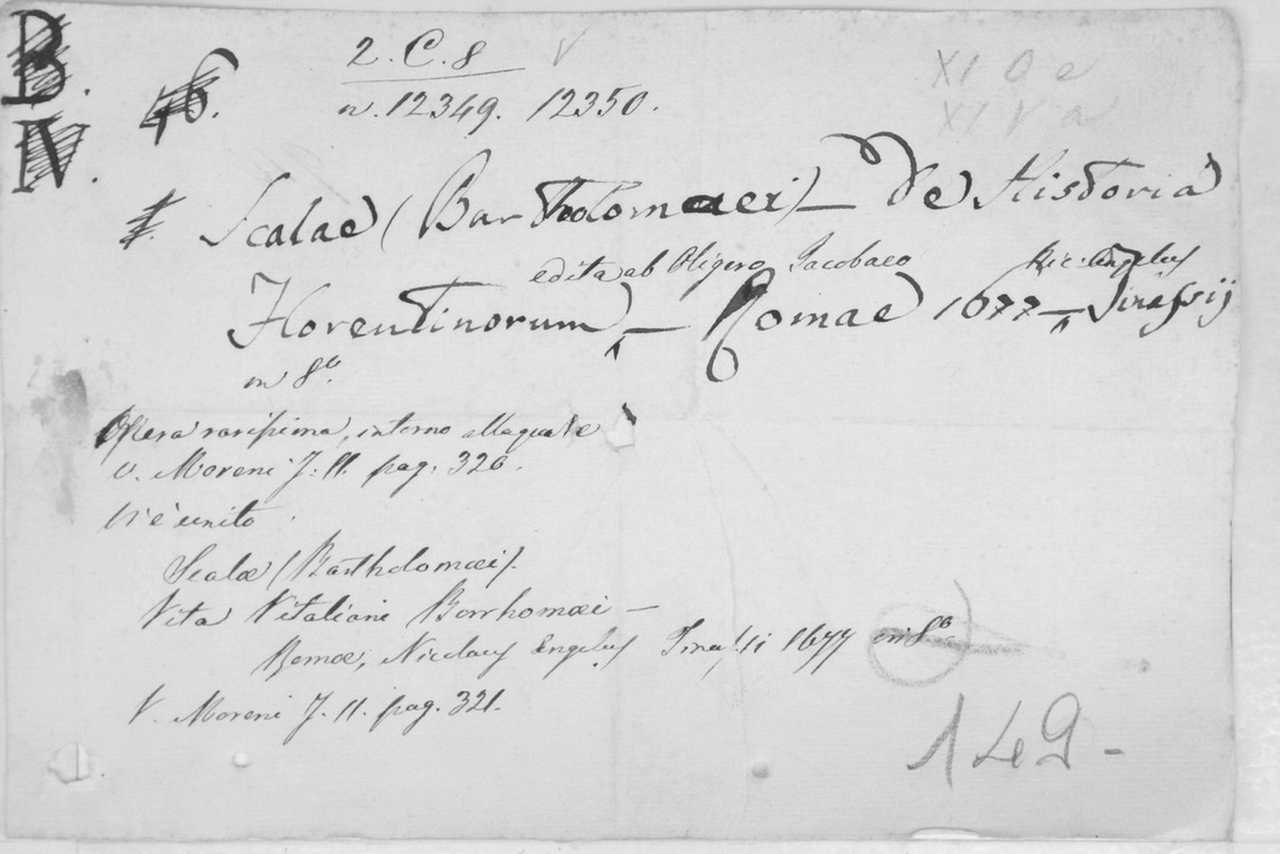 B.
IV.
46.
2. C. 8 V
n. 12349. 12350.
XI V a
Scalae (Bartholomaei) — De Historia
edita ab Oligero Jacobaeo Nic: Angelus
Florentinorum, — Romae 1677 — Tinassij
in 8º.
Opera rarissima, intorno alla quale
v. Moreni T. II. pag. 320.
Vi è unito
Scalæ (Bartholomæi).
Vita Vitaliani Borrhomæi —
Romæ, Nicolaus Angelus Tinassi 1677 in 8º
V. Moreni T. II. pag. 321.
149 -